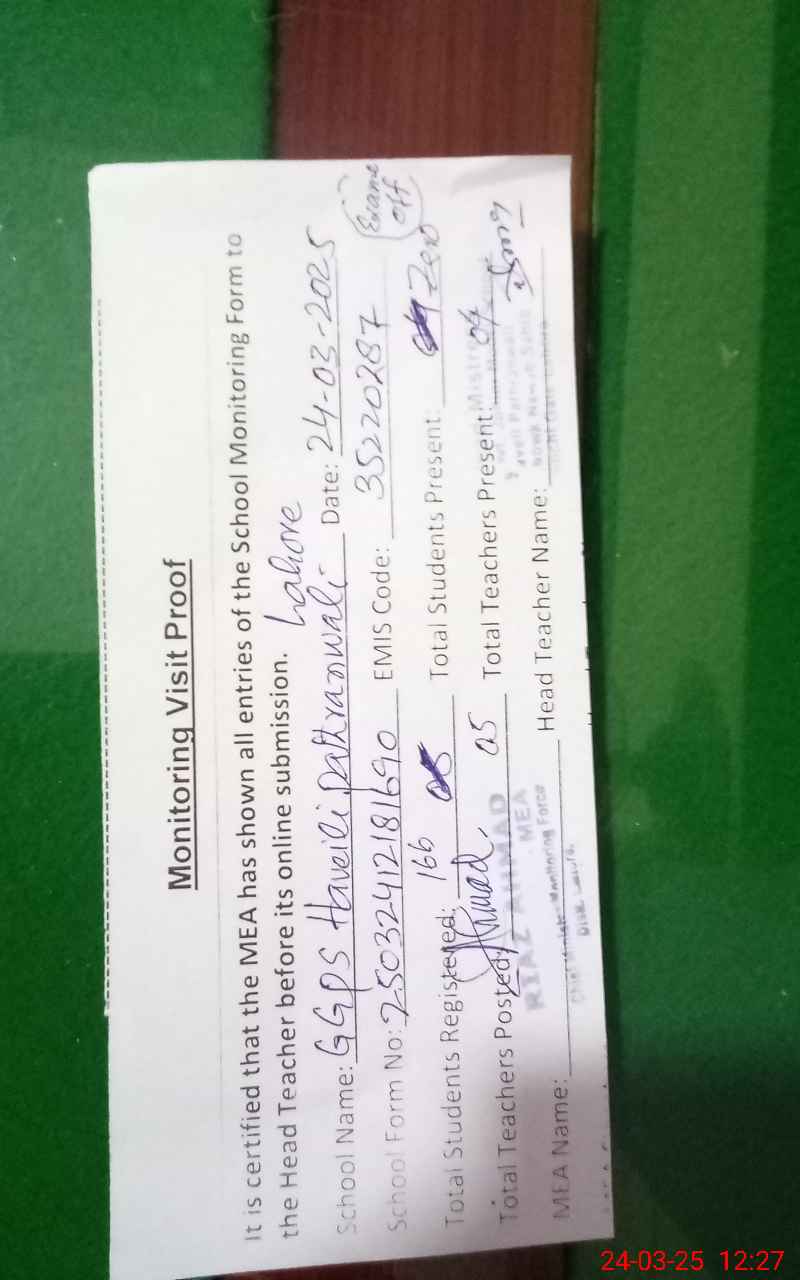 Monitoring Visit Proof
It is certified that the MEA has shown all entries of the School Monitoring Form to
the Head Teacher before its online submission. Lahore
School Name: GGPS Haveili pathranwali Date: 24-03-2025
School Form No: 25032412181690 EMIS Code: 35220287 Exame off
Total Students Registered: 166 Total Students Present: Zero
Total Teachers Posted: 05 Total Teachers Present: 04
Ahmad.
RIAZ AHMAD
MEA
MEA Name: Head Teacher Name:
Monitoring Force
24-03-25 12:27